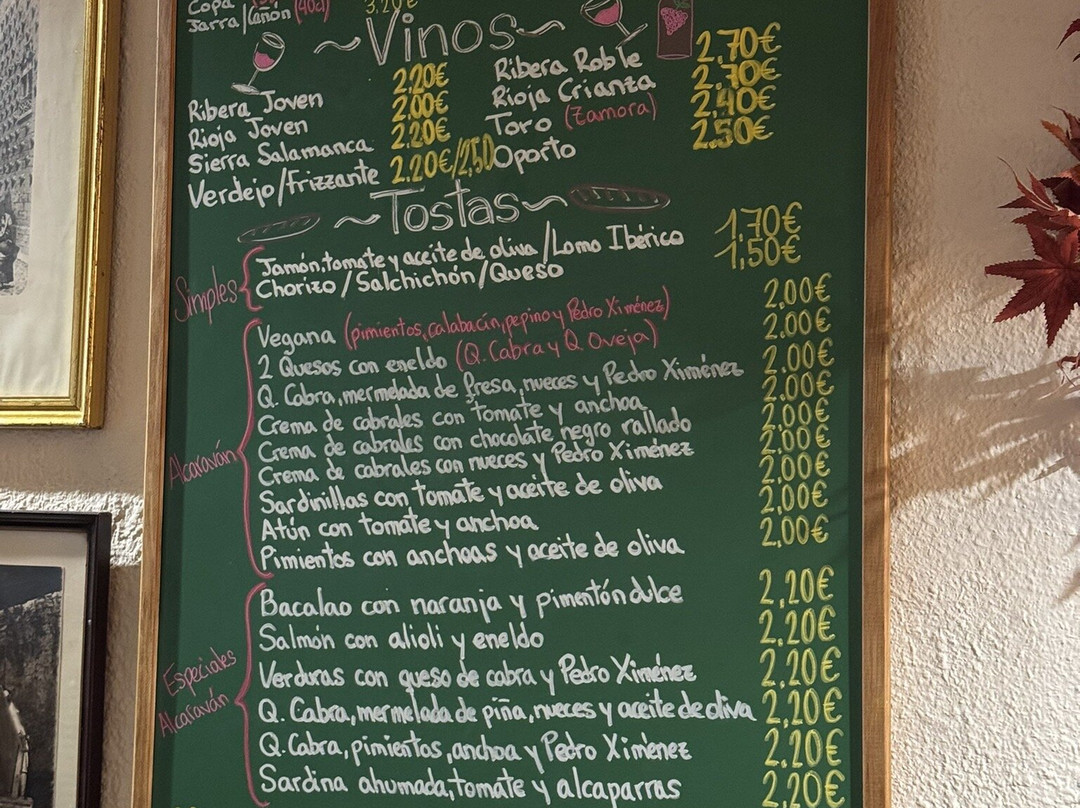 Copa
3.20€
Jarra/Cañón (40cl)
~Vinos~
Ribera Joven 2.20€
Rioja Joven 2.00€
Sierra Salamanca 2.20€
Verdejo/Frizzante 2.20€/2,50
Ribera Roble 2,70€
Rioja Crianza 2,70€
Toro (Zamora) 2,40€
Oporto 2.50€
~Tostas~
Simples
Jamón, tomate y aceite de oliva/Lomo Ibérico 1,70€
Chorizo/Salchichón/Queso 1,50€
Alcaraván
Vegana (pimientos, calabacín, pepino y Pedro Ximénez) 2,00€
2 Quesos con eneldo (Q. Cabra y Q Oveja) 2.00€
Q. Cabra, mermelada de fresa, nueces y Pedro Ximénez 2.00€
Crema de cabrales con tomate y anchoa 2.00€
Crema de cabrales con chocolate negro rallado 2,00€
Crema de cabrales con nueces y Pedro Ximénez 2,00€
Sardinillas con tomate y aceite de oliva 2,00€
Atún con tomate y anchoa 2,00€
Pimientos con anchoas y aceite de oliva 2,00€
Especiales
Alcaraván
Bacalao con naranja y pimentón dulce 2,20€
Salmón con alioli y eneldo 2.20€
Verduras con queso de cabra y Pedro Ximénez 2.20€
Q. Cabra, mermelada de piña, nueces y aceite de oliva 2,20€
Q. Cabra, pimientos, anchoa y Pedro Ximénez 2.20€
Sardina ahumada, tomate y alcaparras 2,20€